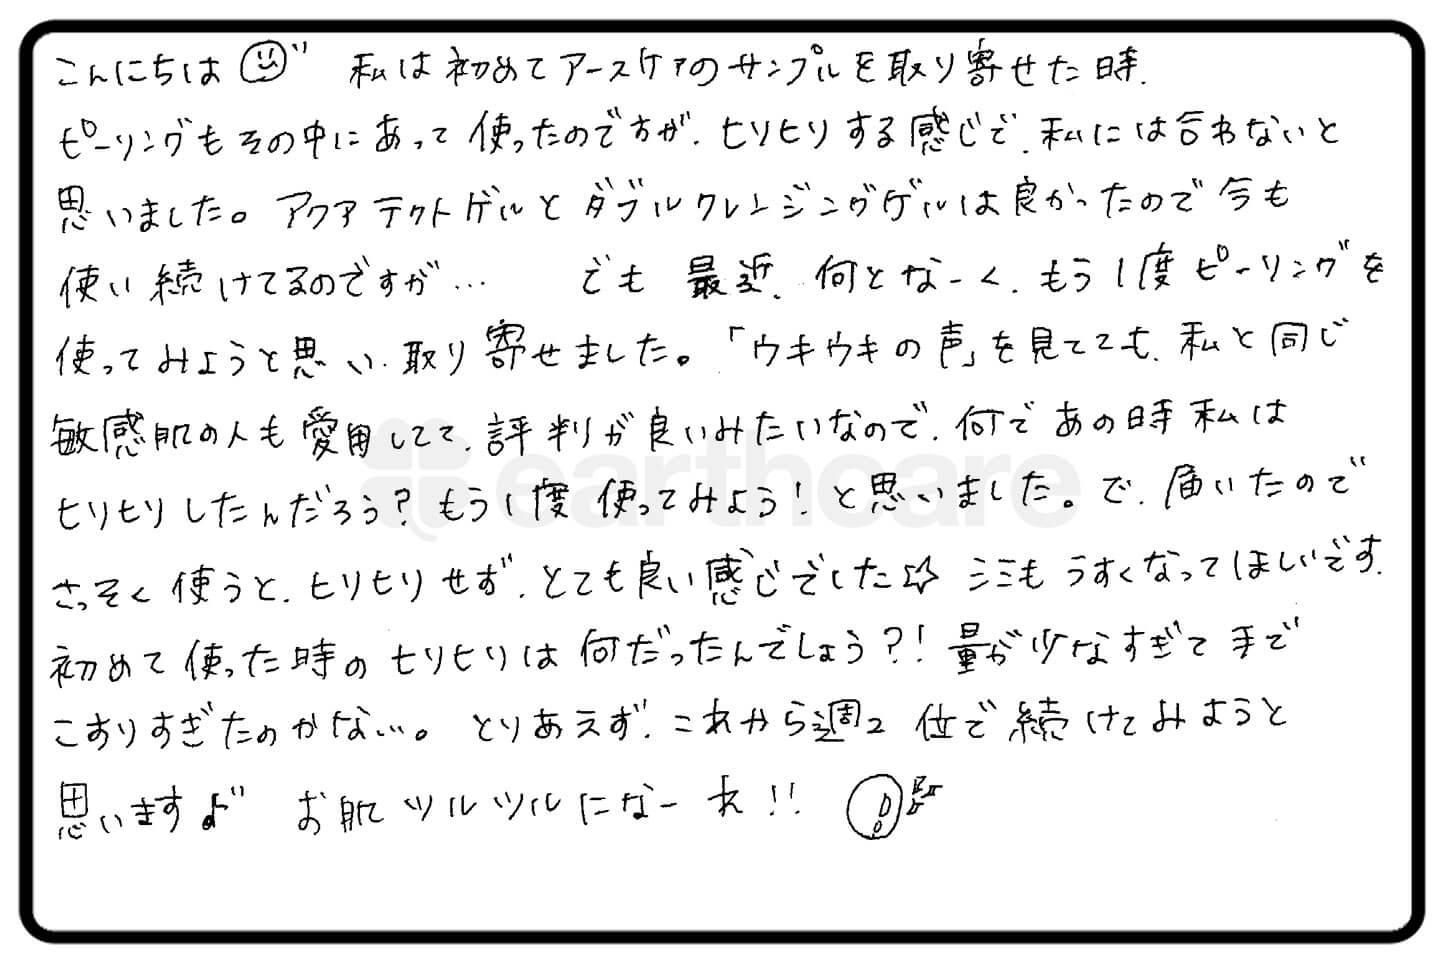 こんにちは 私は初めてアースケアのサンプルを取り寄せた時、
ピーリングもその中にあって使ったのですが、ヒリヒリする感じで、私には合わないと
思いました。アクアテクトゲルとダブルクレンジングゲルは良かったので今も
使い続けてるのですが… でも最近、何となーく、もう1度ピーリングを
使ってみようと思い、取り寄せました。「ウキウキの声」を見てても、私と同じ
敏感肌の人も愛用してて、評判が良いみたいなので、何であの時私は
ヒリヒリしたんだろう?もう1度使ってみよう!と思いました。で、届いたので
さっそく使うと、ヒリヒリせず、とても良い感じでした☆ シミもうすくなってほしいです。
初めて使った時のヒリヒリは何だったんでしょう?!量が少なすぎて手で
こすりすぎたのかな…。とりあえず、これから週2位で続けてみようと
思いますよ" お肌ツルツルになーれ!!
earthcare